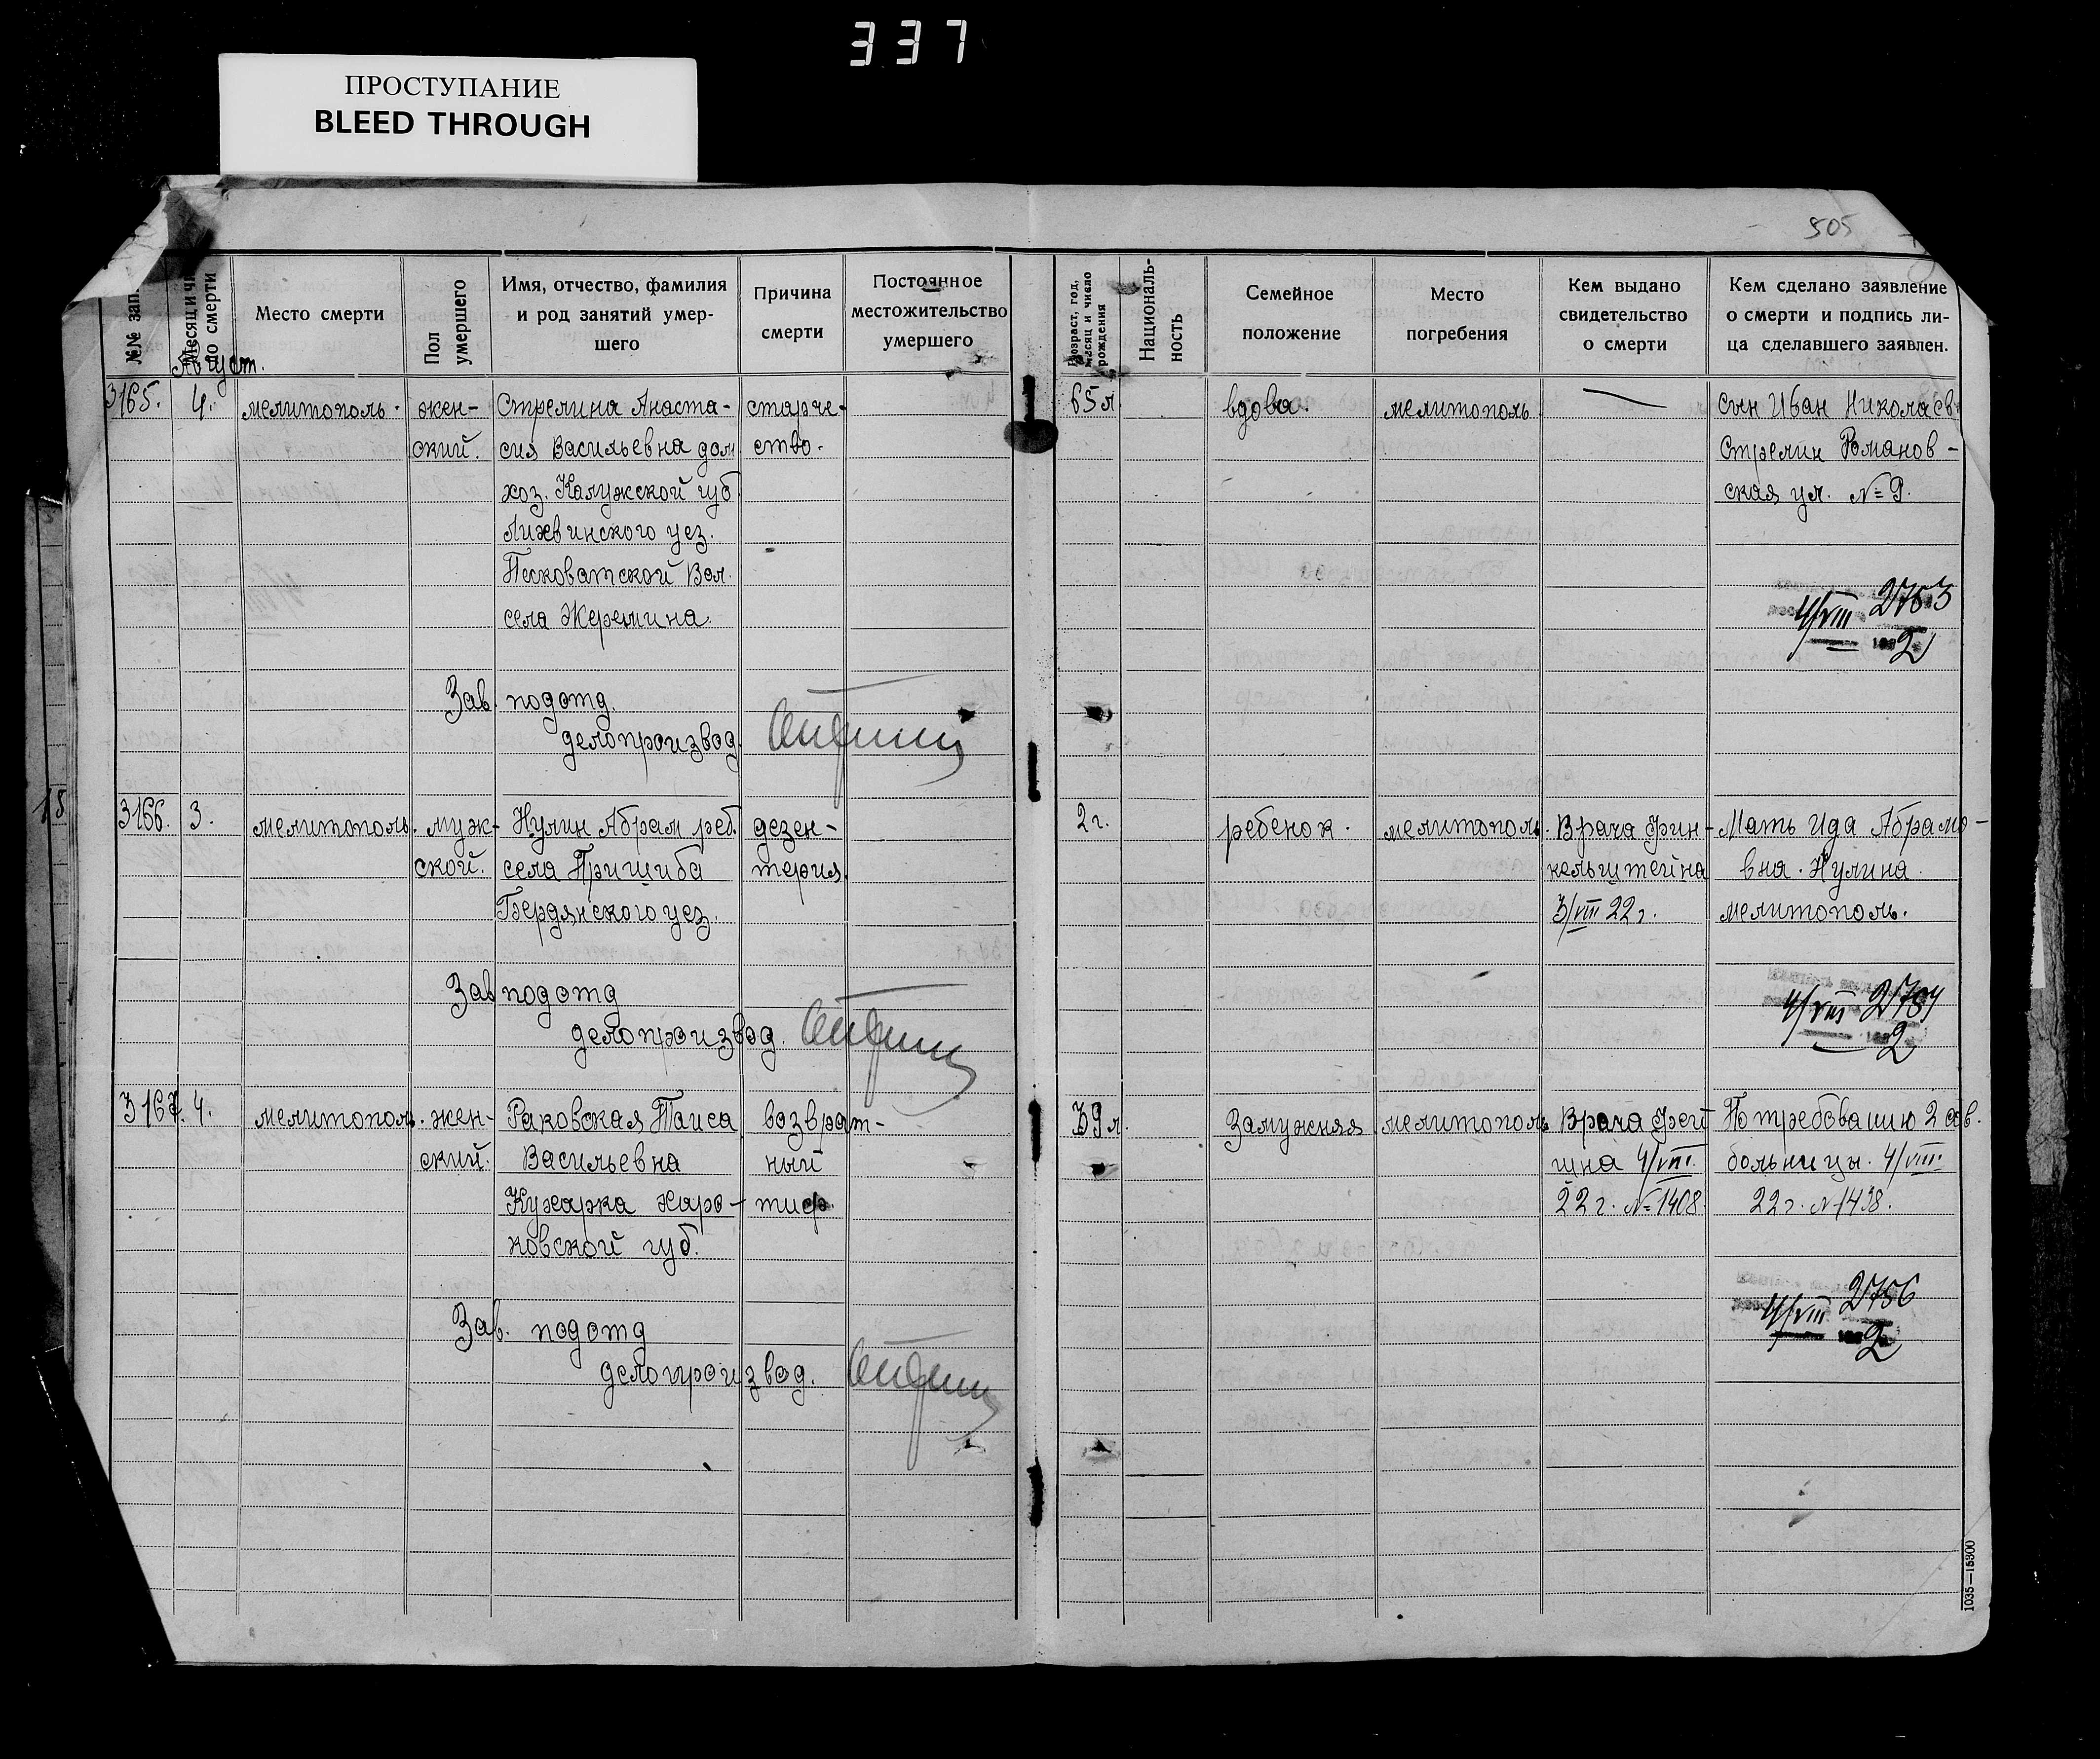 337
ПРОСТУПАНИЕ
BLEED THROUGH
505
№№ зап.
Месяц и чи
ло смерти
Август.
Место смерти
Пол
умершего
Имя, отчество, фамилия
и род занятий умер-
шего
Причина
смерти
Постоянное
местожительство
умершего
Возраст, год,
месяц и число
рождения
Националь-
ность
Семейное
положение
Место
погребения
Кем выдано
свидетельство
о смерти
Кем сделано заявление
о смерти и подпись ли-
ца сделавшего заявлен.
3165.
4.
мелитополь.
жен-
ский.
Стрелина Анаста-
сия Васильевна дом
хоз. Калужской губ
Лихвинского уез.
Песковатской Вол.
села Жеремина.
старче-
ство.
65 л
вдова.
мелитополь
сын Иван Николаев.
Стрелин Романов-
ская ул. №9.
4/VIII 2753
2
Зав. подотд.
делопроизвод.
15
3166.
3.
мелитополь.
муж-
ской.
Нулин Абрам реб.
села Пришиба
Бердянского уез.
дезен-
терия.
2 г.
ребенок.
мелитополь.
Врача Фин-
кельштейна
3/VIII 22 г.
Мать Ида Абрамо-
вна. Нулина.
мелитополь.
4/VIII 2754
2
Зав подотд
делопроизвод.
3167.
4.
мелитополь.
жен-
ский.
Раковская Таиса
Васильевна
Кухарка Харь-
ковской губ.
возврат-
ный
тиф
39 л.
Замужняя
мелитополь
Врача Фей
гина 4/VIII.
22 г. №1408.
По требованию 2 сов.
больницы. 4/VIII.
22 г. №1438.
4/VIII 2756
2
Зав. подотд
делопроизвод.
1035—15300